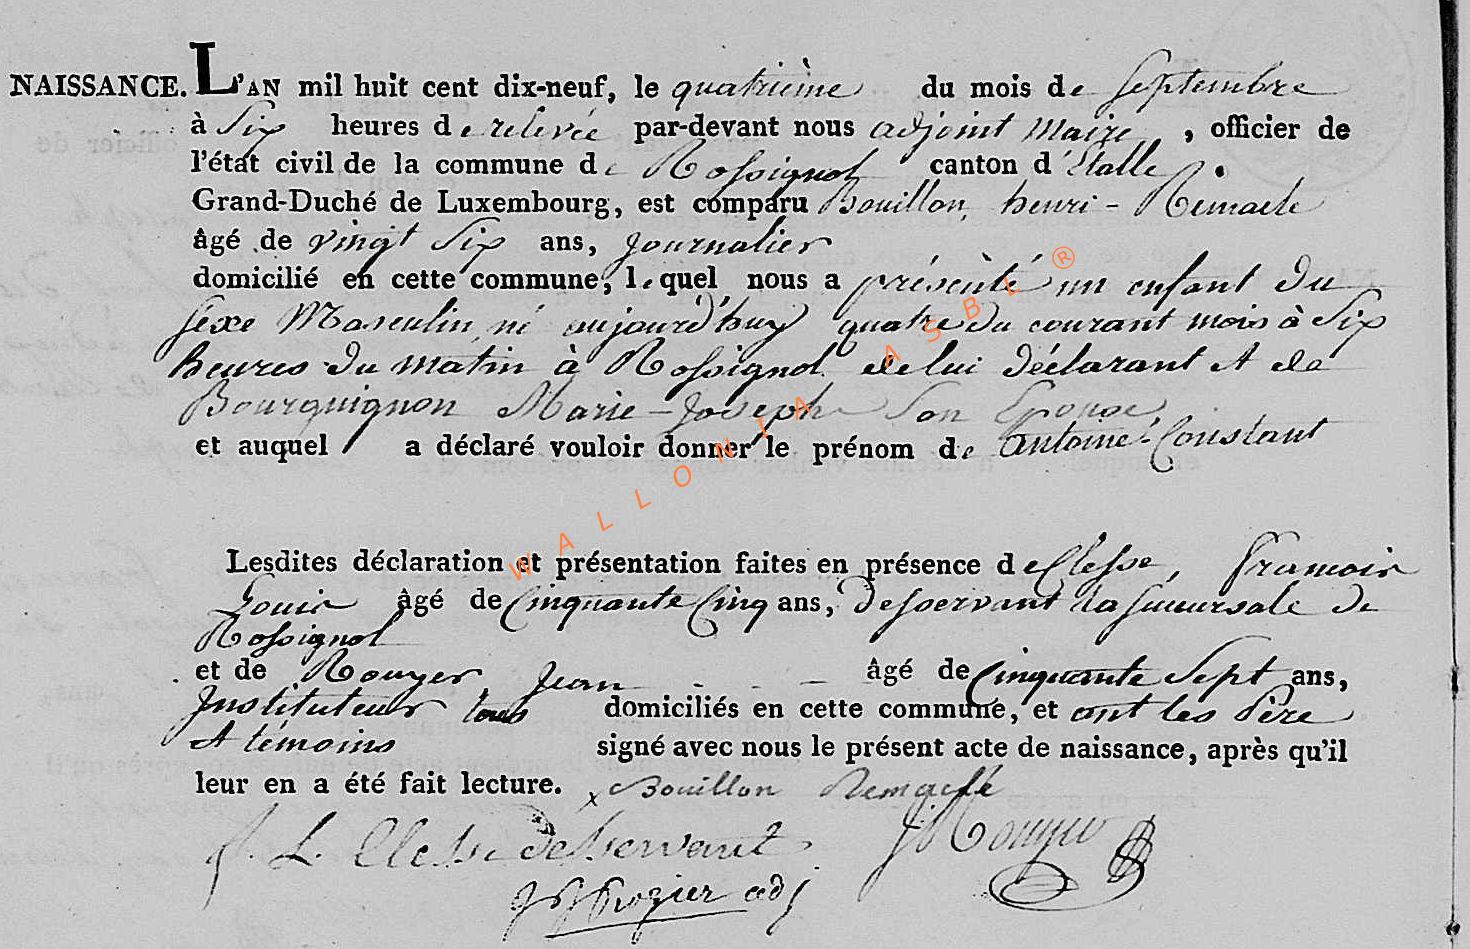 NAISSANCE. L'AN mil huit cent dix-neuf, le quatrième du mois de Septembre
à Six heures de relevée par-devant nous adjoint Maire, officier de
l'état civil de la commune de Rossignol canton d'Etalle.
Grand-Duché de Luxembourg, est comparu Bouillon, henri-Remacle
âgé de vingt Six ans, journalier
domicilié en cette commune, lequel nous a présenté un enfant du
sexe Masculin né aujourd'huy quatre du courant mois à Six
heures du matin à Rossignol de lui déclarant et de
Bourguignon Marie-Josephe Son Epouse
et auquel a déclaré vouloir donner le prénom de Antoine-Constant
Lesdites déclaration et présentation faites en présence de Clesse, Francois
Louis âgé de Cinquante Cinq ans, desservant la succursale de
Rossignol
et de Rouyer Jean - - - âgé de Cinquante Sept ans,
Instituteur tous domiciliés en cette commune, et ont les Père
et témoins signé avec nous le présent acte de naissance, après qu'il
leur en a été fait lecture. x Bouillon Remacle
f. L. Clesse desservant J Rouyer
adj
WALLONIA ASBL ®